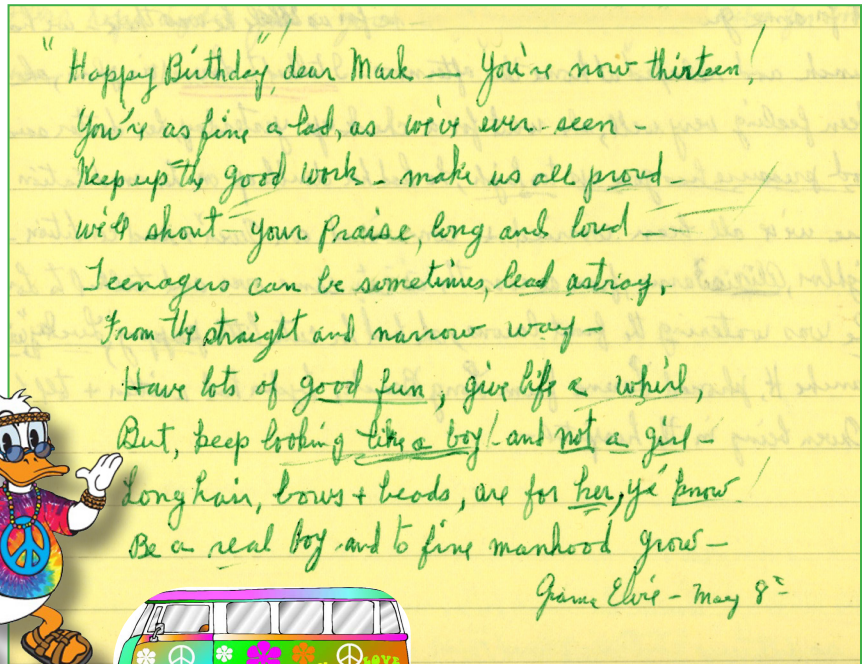 "Happy Birthday"! dear Mark — You're now thirteen!
You're as fine a lad, as we've ever seen -
Keep up the good work - make us all proud -
We'll shout - your Praise, long and loud —
Teenagers can be sometimes, lead astray,
From the straight and narrow way -
Have lots of good fun, give life a whirl,
But, keep looking like a boy! and not a girl -
Long hair, bows + beads, are for her, ya' know!
Be a real boy and to fine manhood grow -
Elvie - May 8
LOVE